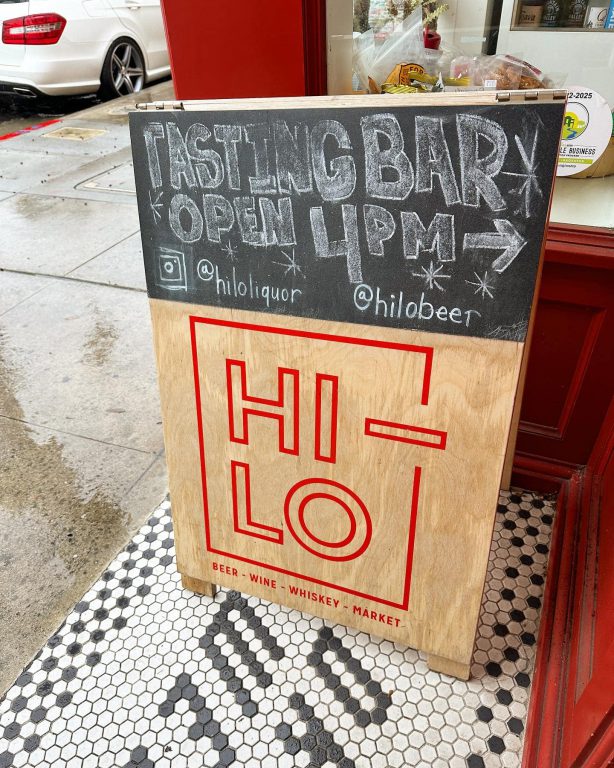 TASTING BAR
OPEN 4PM →
@hiloliquor @hilobeer
HI-
LO
BEER - WINE - WHISKEY - MARKET
2-2025
BUSINESS